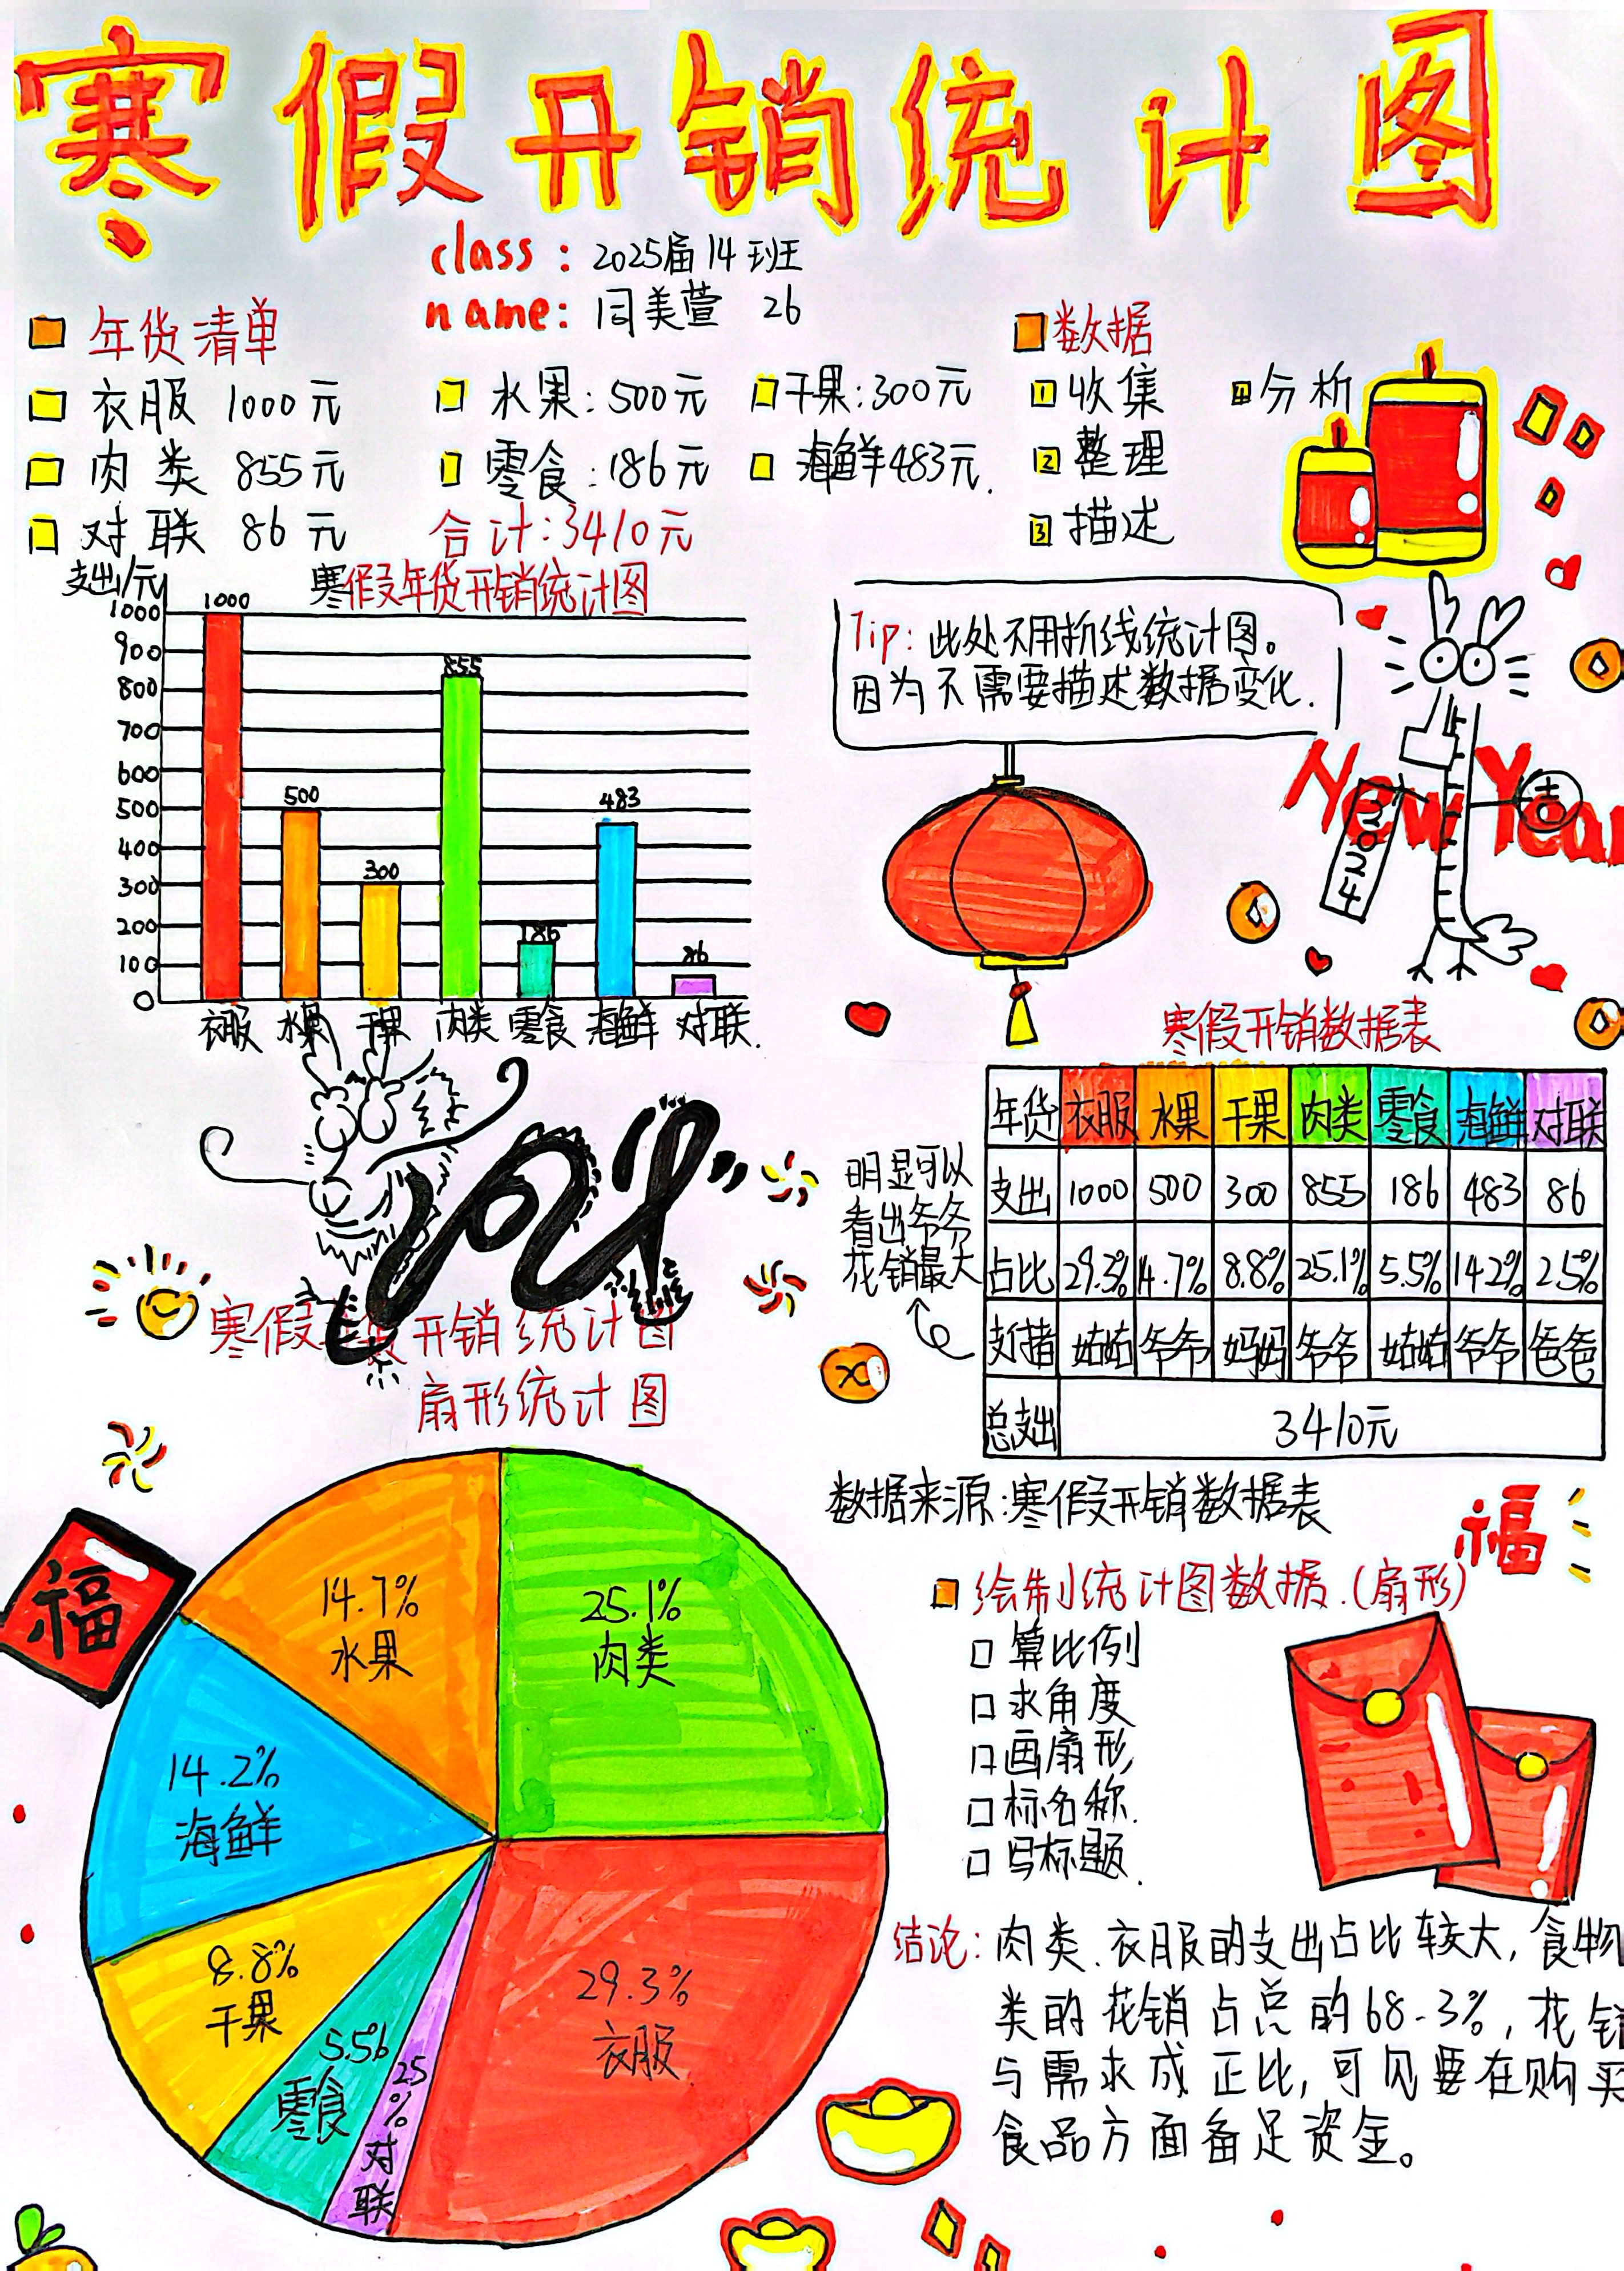 寒假开销统计图
class: 2025届14班
name: 闫美萱 26
年货清单
衣服 1000元
水果:500元
干果:300元
肉类 855元
零食:186元
海鲜483元.
对联 86元
合计:3410元
数据
1 收集
4 分析
2 整理
3 描述
支出/元
寒假年货开销统计图
1000
900
800
700
600
500
400
300
200
100
0
1000
500
300
855
186
483
86
衣服 水果 干果 肉类 零食 海鲜 对联.
Tip: 此处不用折线统计图。
因为不需要描述数据变化.
New Year
2024
吉
寒假开销数据表
年货 衣服 水果 干果 肉类 零食 海鲜 对联
支出 1000 500 300 855 186 483 86
占比 29.3% 14.7% 8.8% 25.1% 5.5% 14.2% 2.5%
支付者 姑姑 爷爷 妈妈 爷爷 姑姑 爷爷 爸爸
总支出 3410元
明显可以
看出爷爷
花销最大
数据来源:寒假开销数据表
2024
寒假年货开销统计图
扇形统计图
25.1%
肉类
14.7%
水果
14.2%
海鲜
8.8%
干果
5.5%
零食
25
%
对
联
29.3%
衣服
福
福
绘制统计图数据.(扇形)
算比例
求角度
画扇形
标名称.
写标题.
结论: 肉类.衣服的支出占比较大,食物
类的花销占总的68.3%,花销
与需求成正比,可见要在购买
食品方面备足资金。